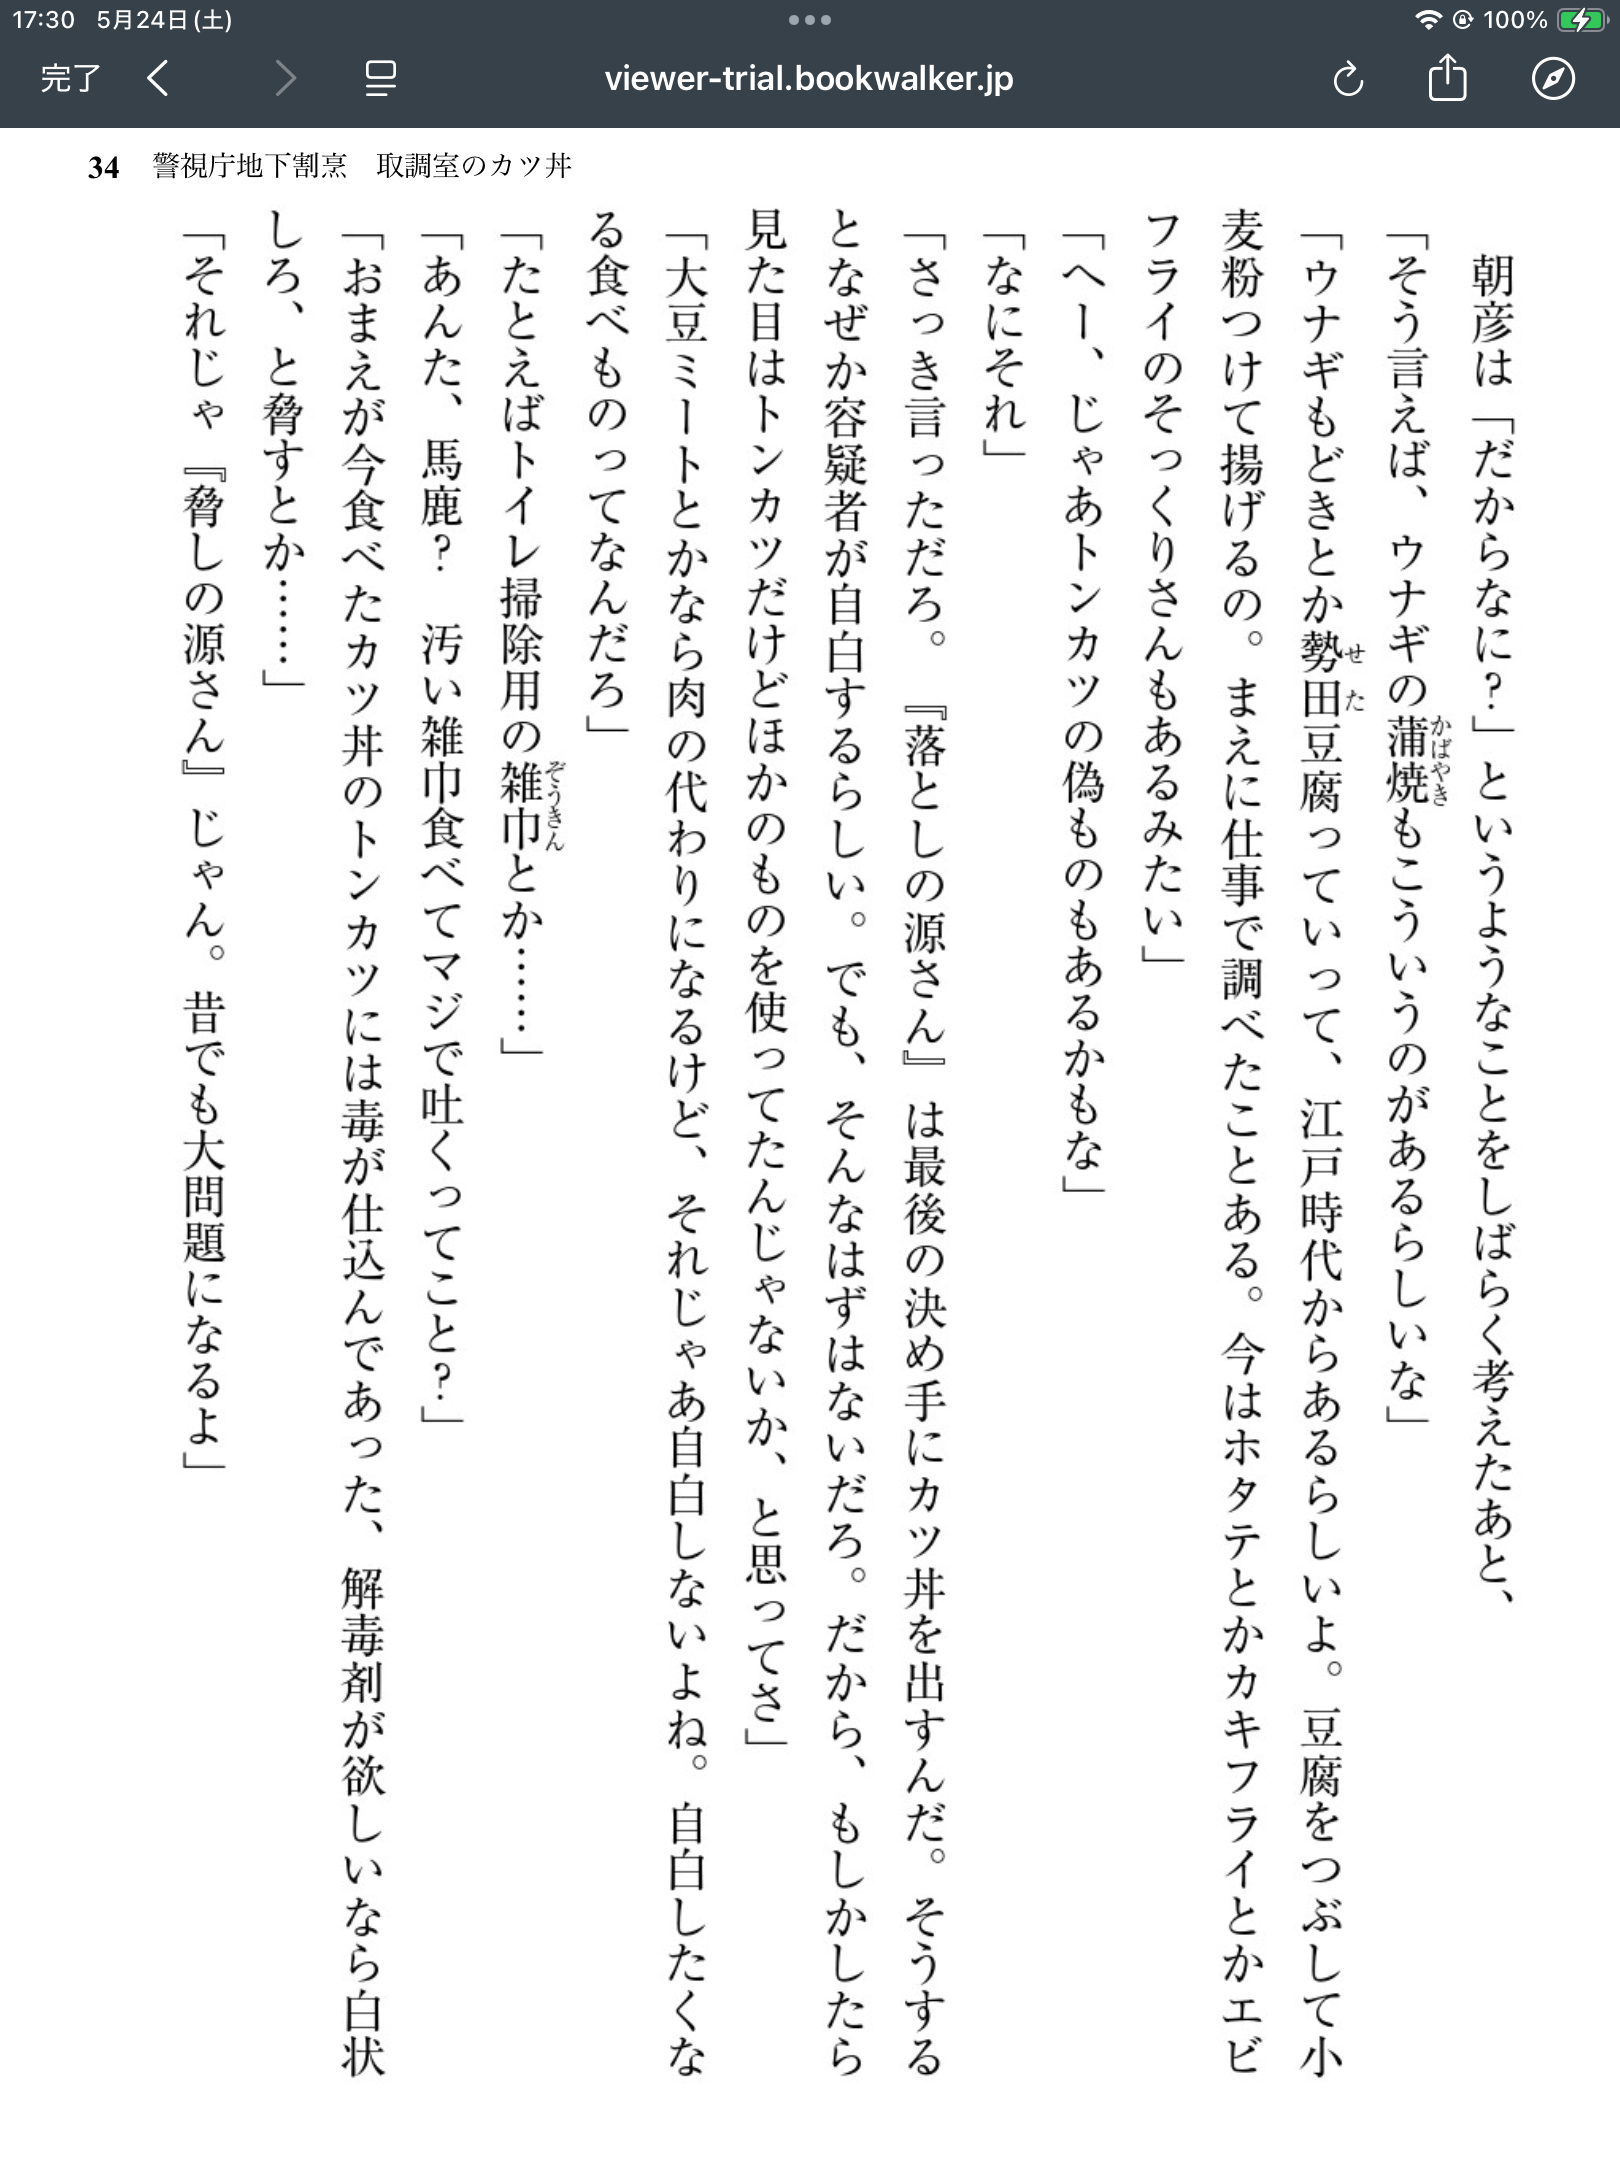 17:30 5月24日(土)
100%
完了
viewer-trial.bookwalker.jp
34 警視庁地下割烹 取調室のカツ丼
朝彦は「だからなに?」というようなことをしばらく考えたあと、
「そう言えば、ウナギの蒲焼もこういうのがあるらしいな」
かばやき
「ウナギもどきとか勢田豆腐っていって、江戸時代からあるらしいよ。豆腐をつぶして小
せた
麦粉つけて揚げるの。まえに仕事で調べたことある。今はホタテとかカキフライとかエビ
フライのそっくりさんもあるみたい」
「へー、じゃあトンカツの偽ものもあるかもな」
「なにそれ」
「さっき言っただろ。『落としの源さん』は最後の決め手にカツ丼を出すんだ。そうする
となぜか容疑者が自白するらしい。でも、そんなはずはないだろ。だから、もしかしたら
見た目はトンカツだけどほかのものを使ってたんじゃないか、と思ってさ」
「大豆ミートとかなら肉の代わりになるけど、それじゃあ自白しないよね。自白したくな
る食べものってなんだろ」
「たとえばトイレ掃除用の雑巾とか……」
ぞうきん
「あんた、馬鹿? 汚い雑巾食べてマジで吐くってこと?」
「おまえが今食べたカツ丼のトンカツには毒が仕込んであった、解毒剤が欲しいなら白状
しろ、と脅すとか……」
「それじゃ『脅しの源さん』じゃん。昔でも大問題になるよ」